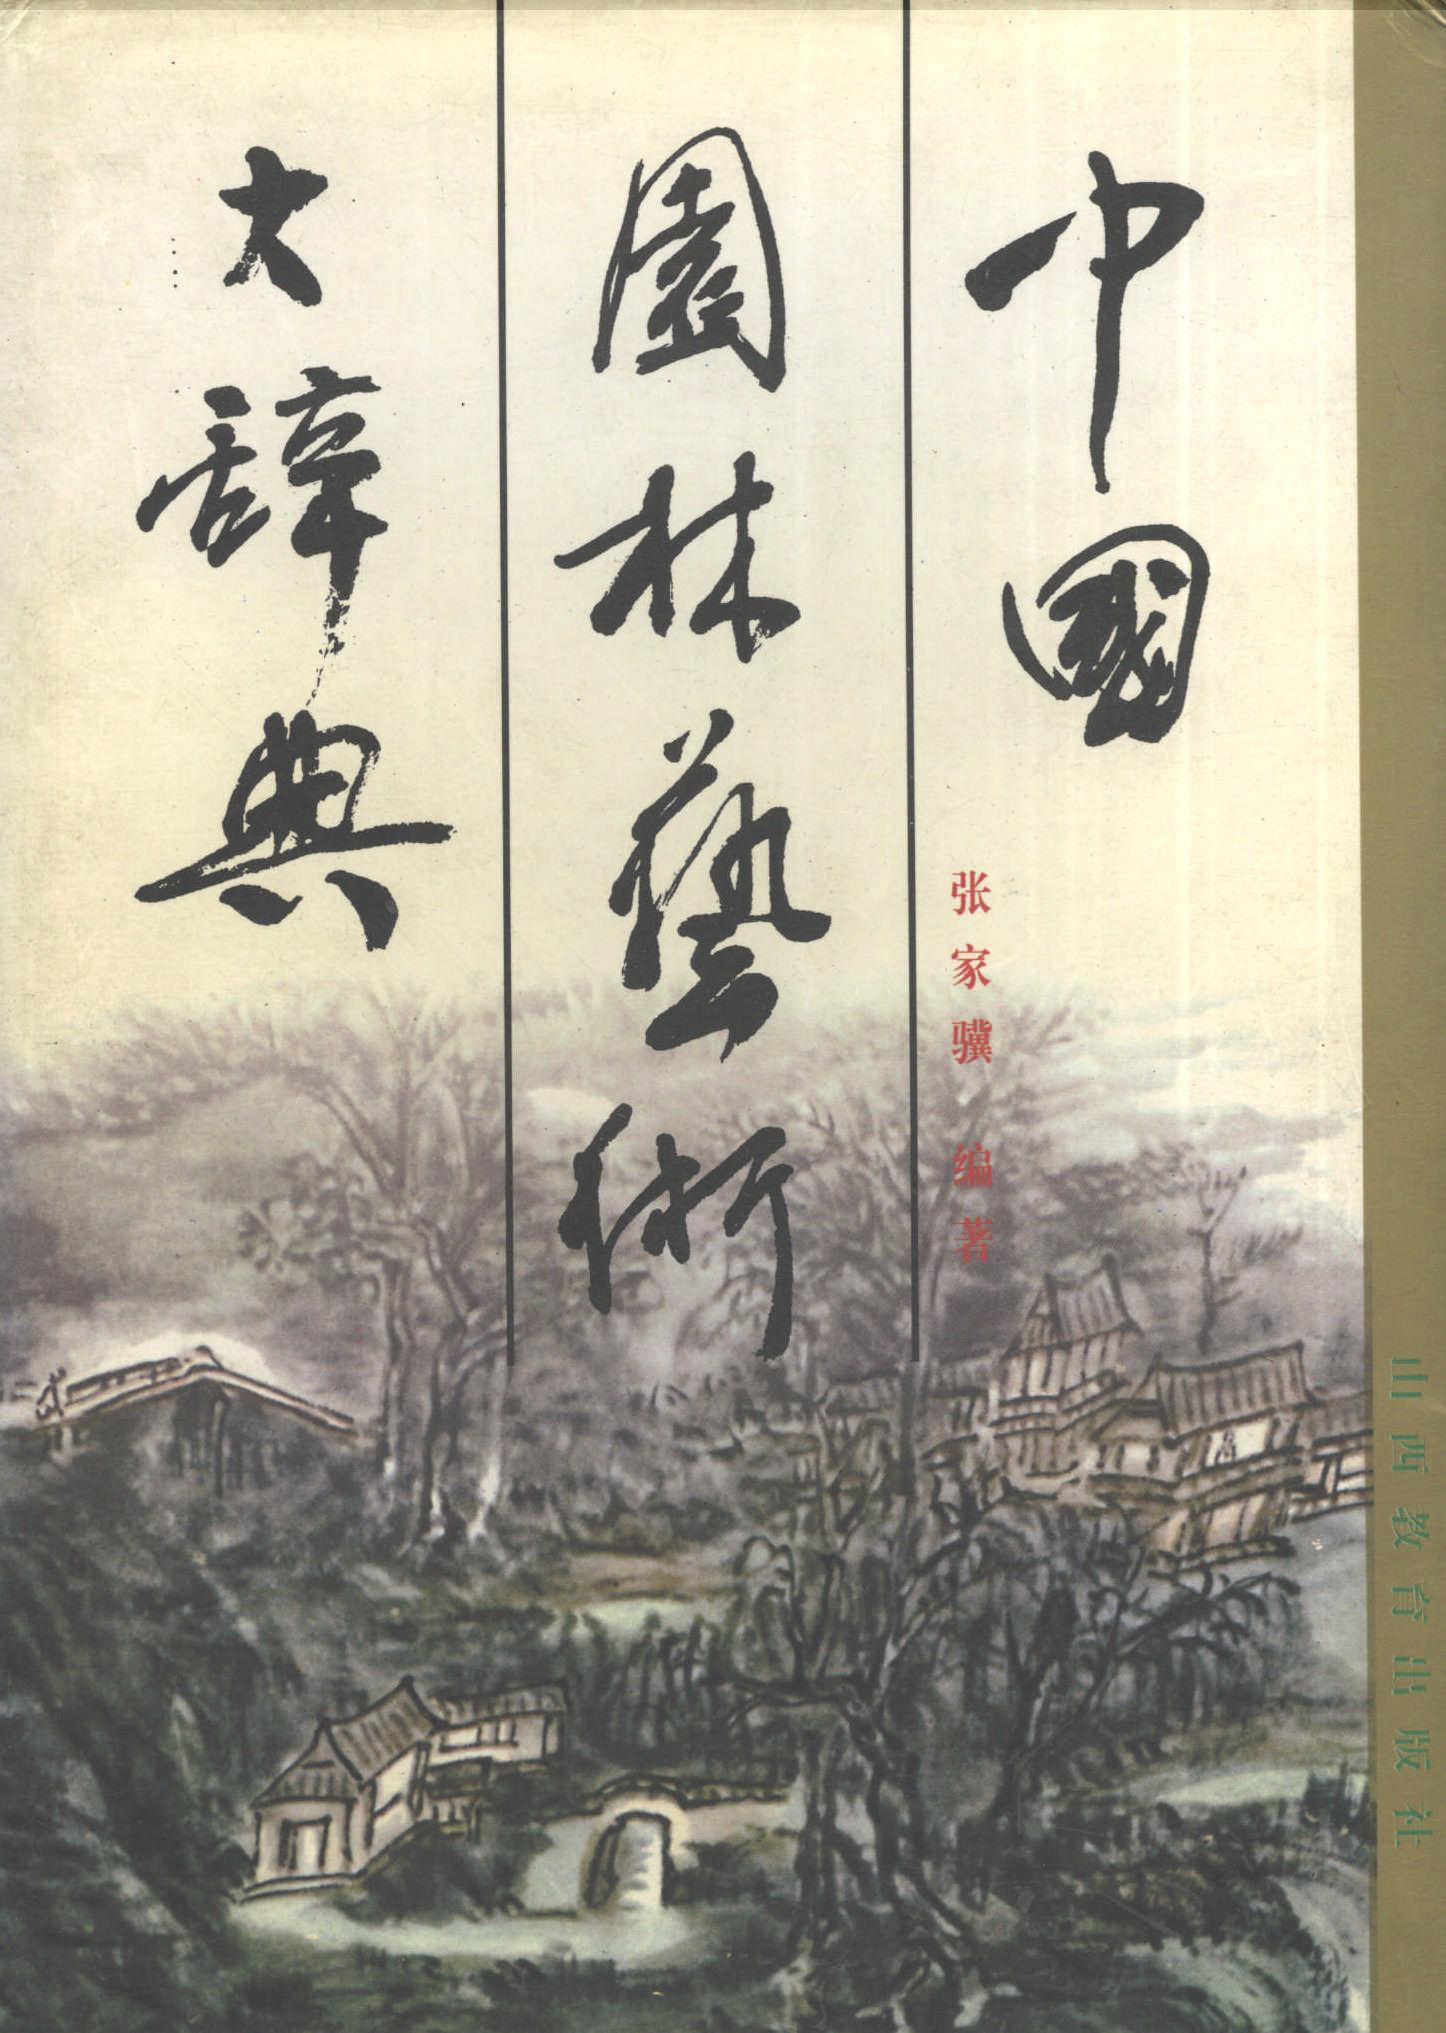 中國
園林藝術
大辞典
张家骥 编著
山西教育出版社